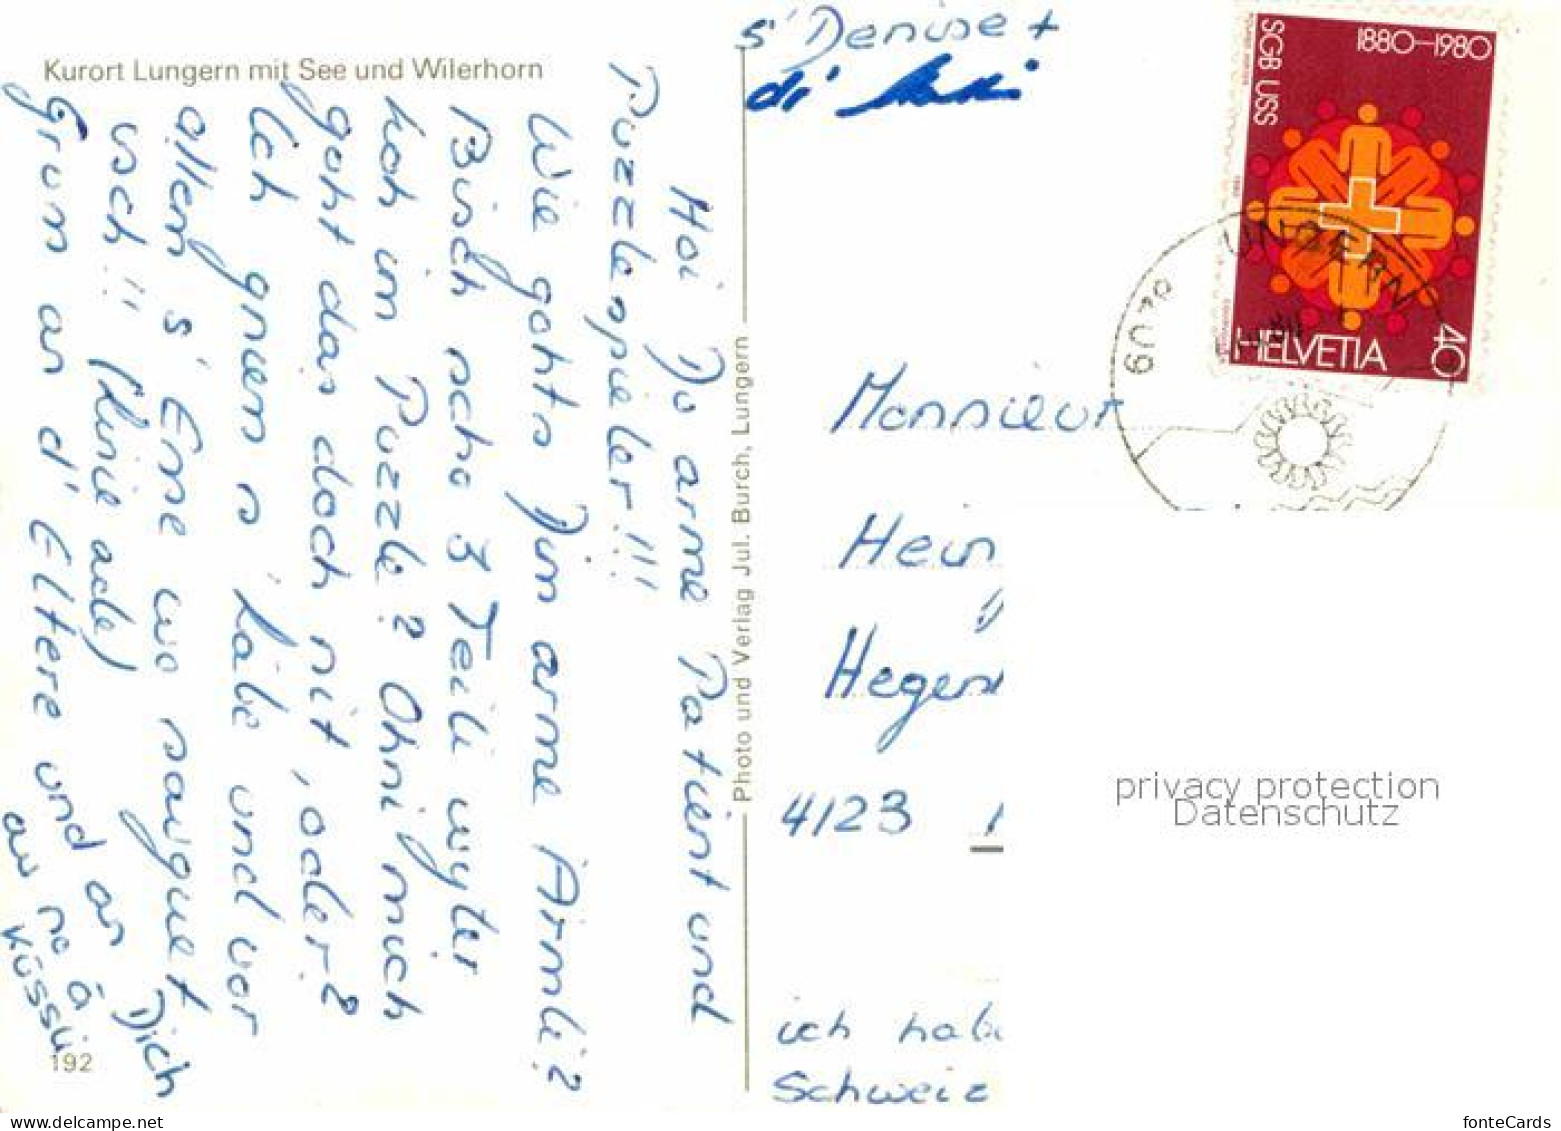 Kurort Lungern mit See und Wilerhorn
Hoi Du arme Patient und
Puzzlespieler!!!
Wie gohts Dim arme Ärmli?
Bisch scho 3 Teili wyter
koh im Puzzle? Ohni mich
goht das doch nit, oder?
Ich gniess s' Läbe und vor
allem s' Ässe wo
usch!! (Linie ade)
Gruss an d' Eltere und an Dich
au no ä
Küssli
s' Denise +
di
192
Photo und Verlag Jul. Burch, Lungern
1880–1980
SGB USS
HELVETIA
40
6078 LUNGERN
Monsieur
Hein
Hegen
4123
ich habe
Schweiz
privacy protection
Datenschutz
fonteCards